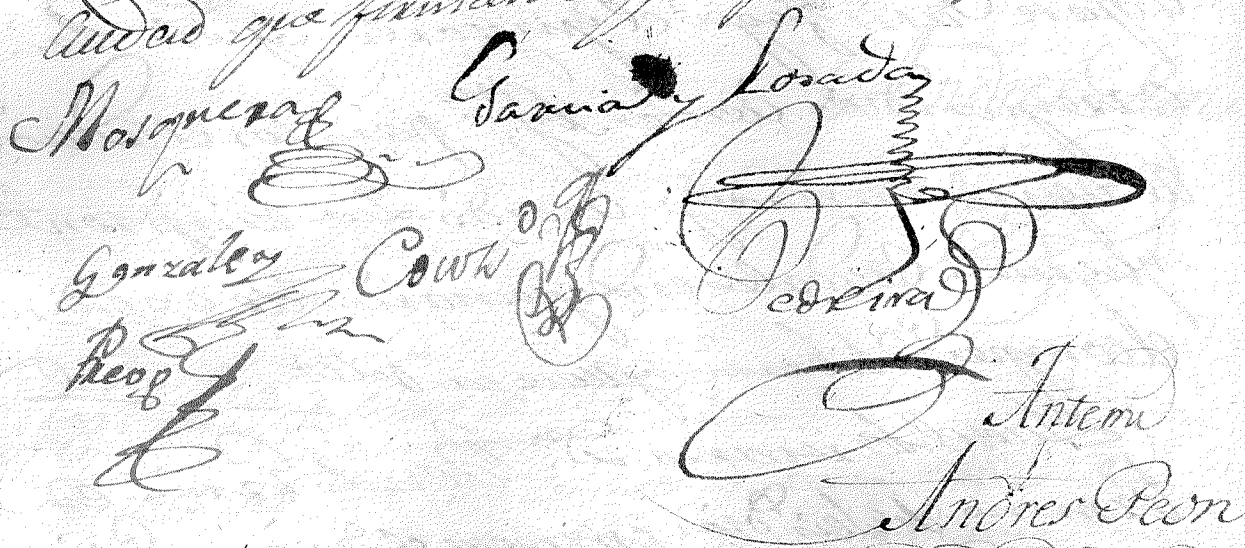 Ciudad que firman
Mosquera
Garcia y Losada
Gonzalez
Pedreira
Antemi
Andres Peon